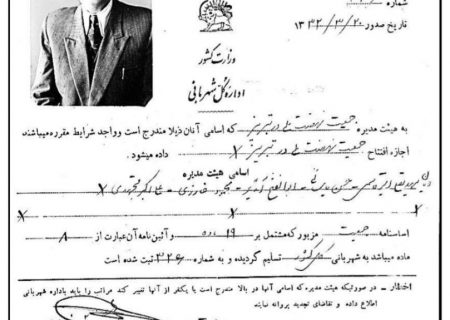 شماره
تاریخ صدور ۱۳۳۲/۳/۲۰
وزارت کشور
اداره کل شهربانی
به هیئت مدیره جمعیت نهضت ملی در تبریز که اسامی آنان ذیلا مندرج است وواجد شرایط مقرره میباشند
اجازه افتتاح جمعیت نهضت ملی در تبریز X داده میشود.
اسامی هیئت مدیره
X
X X X
اساسنامه جمعیت مزبور که مشتمل بر ۱۹ ماده وآئین نامه آن عبارت از ۸
ماده میباشد به شهربانی کل کشور تسلیم گردیده و به شماره ۳۲۶ ثبت شده است
اخطار ـ در صورتیکه هیئت مدیره که اسامی آنها در بالا مندرج است یا یکنفر از آنها تغییر کند مراتب را باید باداره شهربانی
اطلاع داده و تقاضای تجدید پروانه نمایند